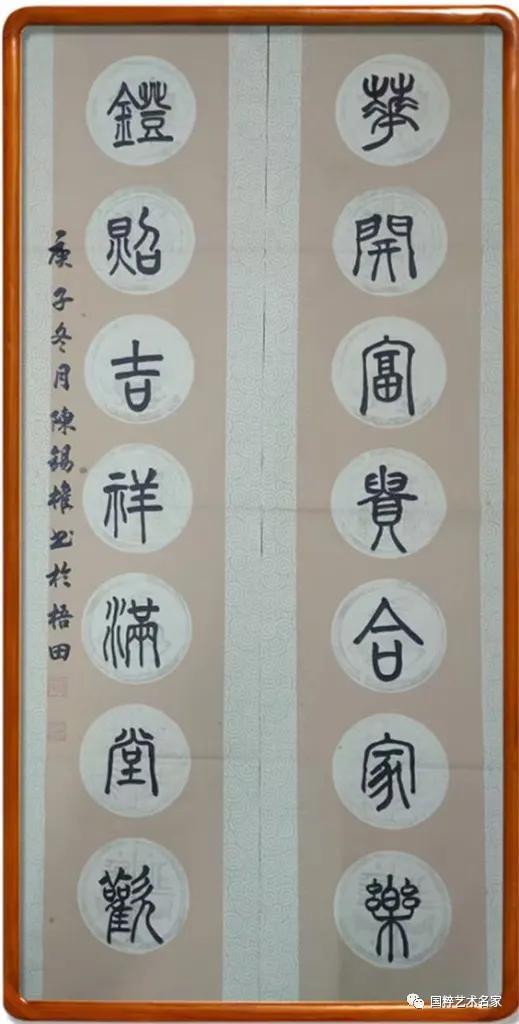 華開富貴合家樂
鐙照吉祥滿堂歡
庚子冬月陳錫權书於梧田
国粹艺术名家